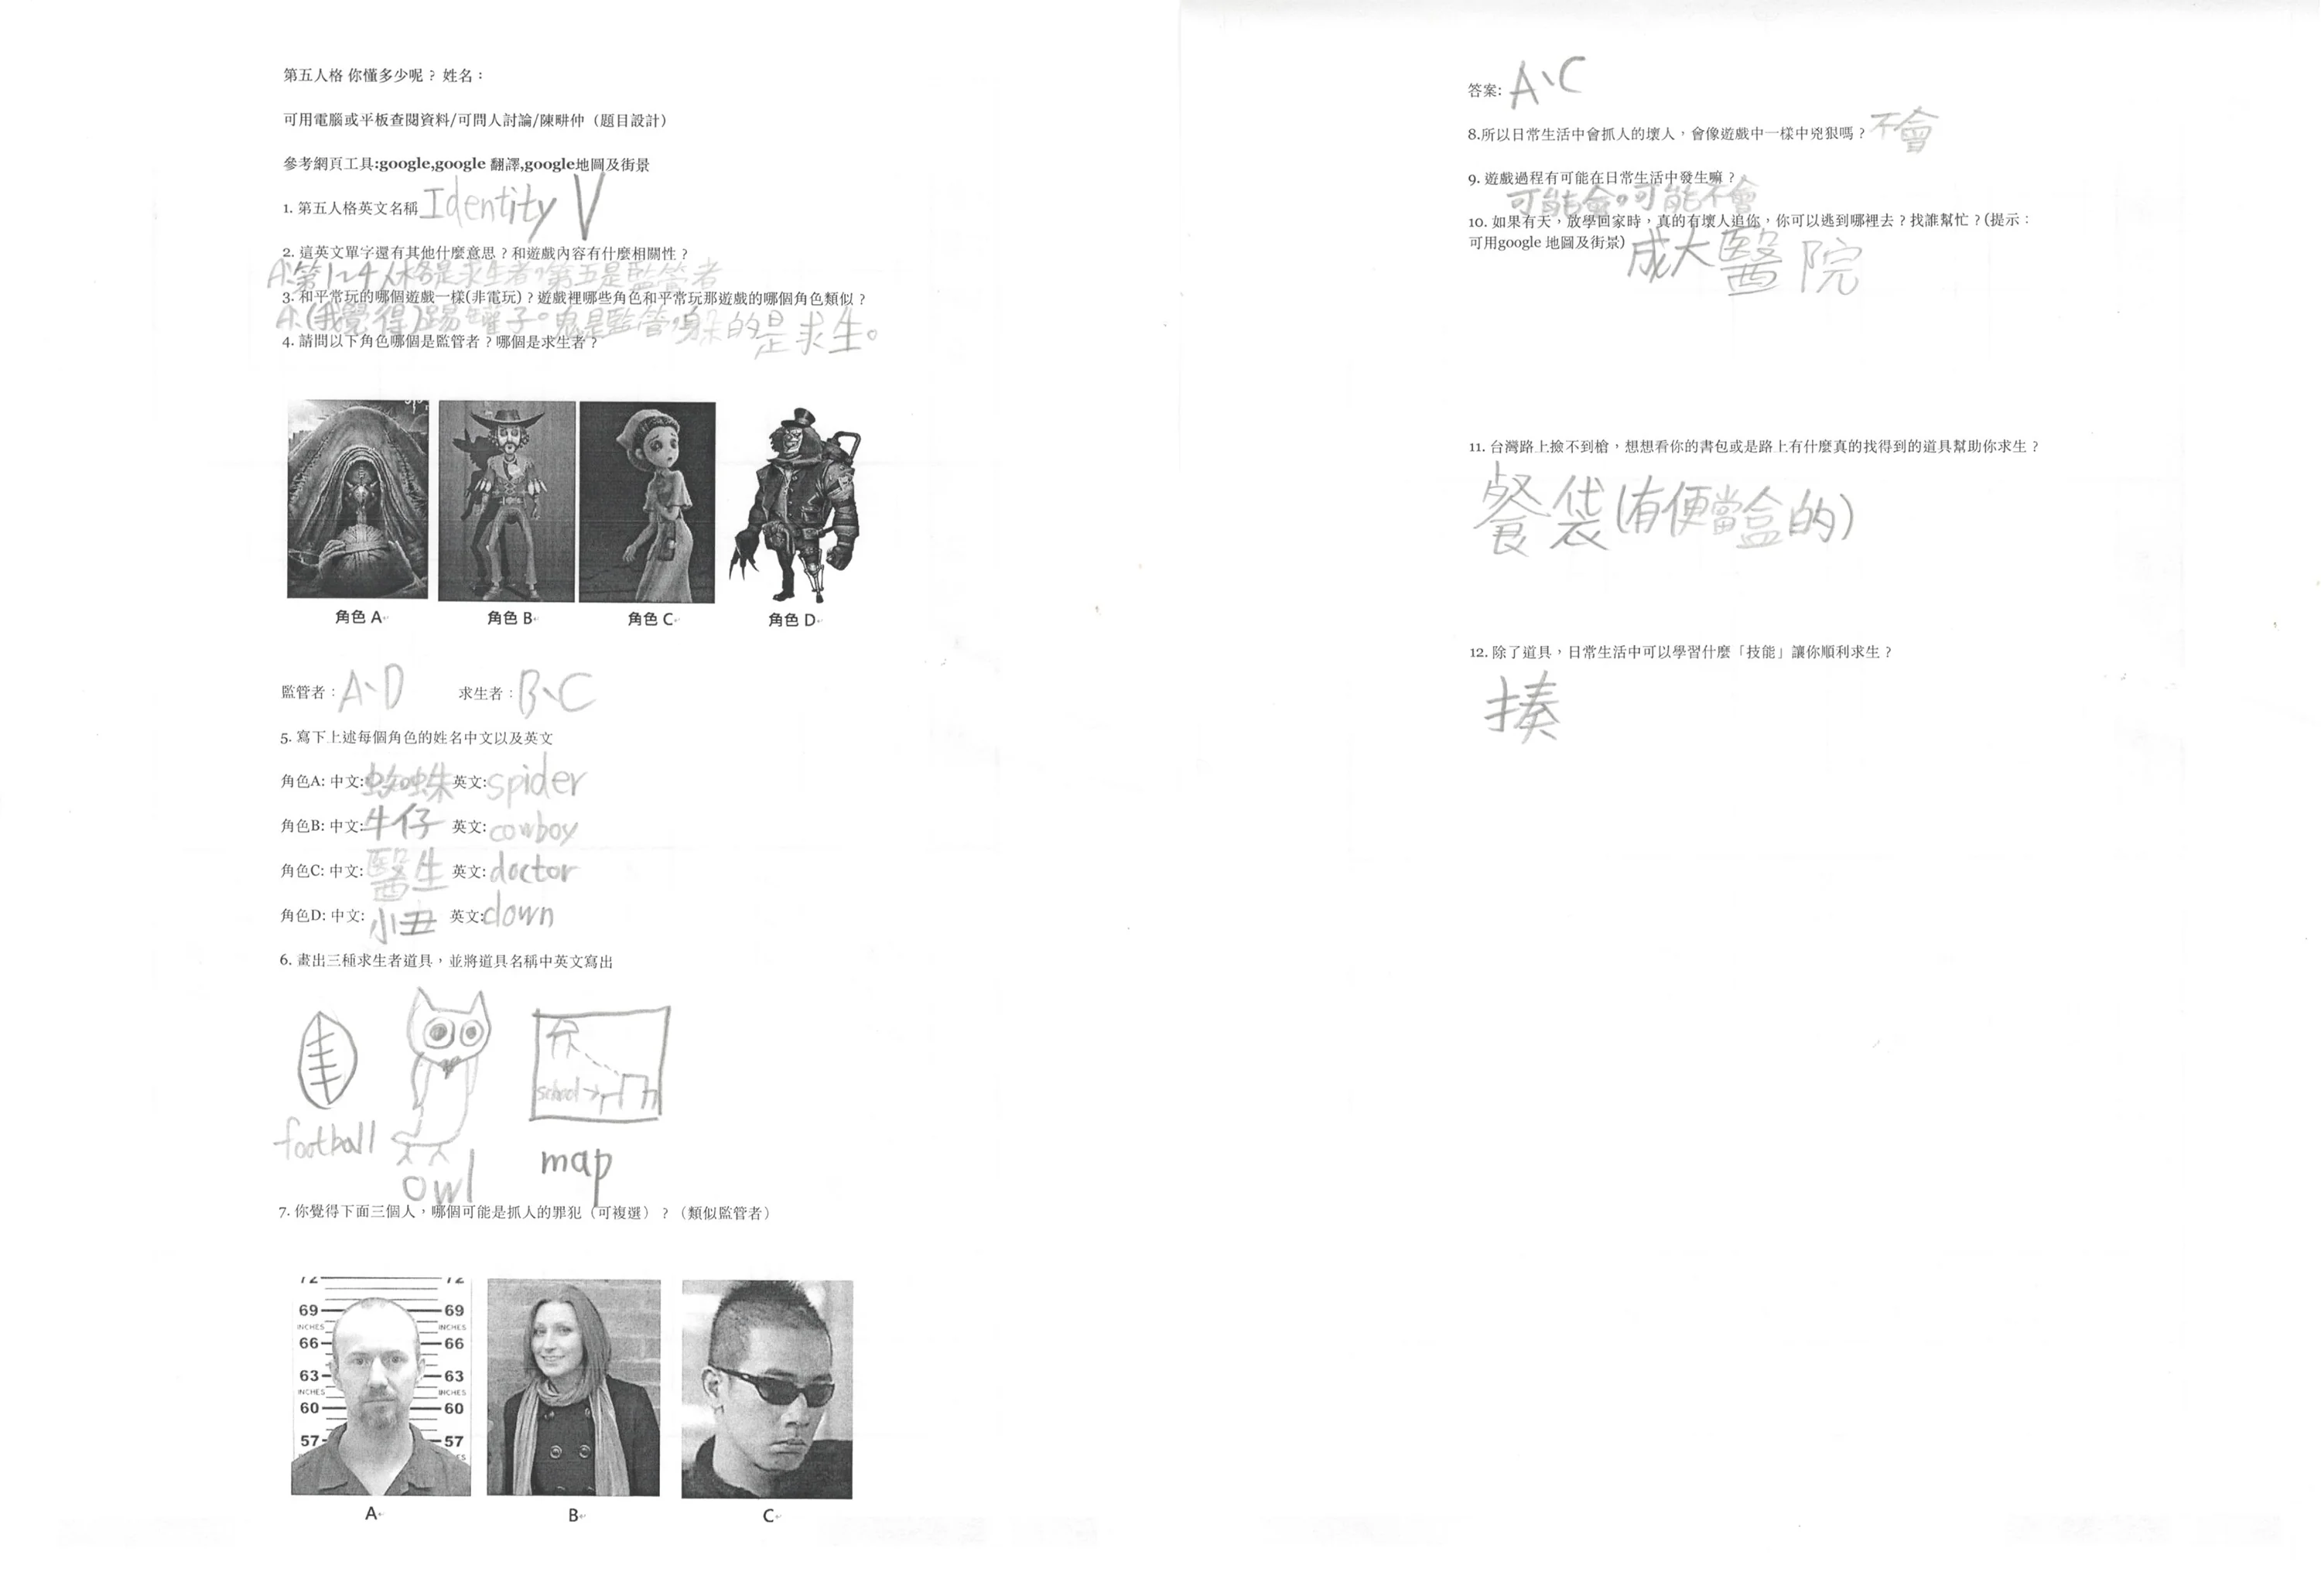 第五人格 你懂多少呢？ 姓名：
可用電腦或平板查閱資料/可問人討論/陳畊仲（題目設計）
參考網頁工具:google,google 翻譯,google地圖及街景
1. 第五人格英文名稱 Identity V
2. 這英文單字還有其他什麼意思？和遊戲內容有什麼相關性？
A:第1~4人格是求生者，第五是監管者
3. 和平常玩的哪個遊戲一樣(非電玩)？遊戲裡哪些角色和平常玩那遊戲的哪個角色類似？
A:(我覺得)踢罐子。鬼是監管，躲的是求生。
4. 請問以下角色哪個是監管者？哪個是求生者？
角色 A 角色 B 角色 C 角色 D
監管者：A、D 求生者：B、C
5. 寫下上述每個角色的姓名中文以及英文
角色A: 中文:蜘蛛 英文:spider
角色B: 中文:牛仔 英文:cowboy
角色C: 中文:醫生 英文:doctor
角色D: 中文:小丑 英文:clown
6. 畫出三種求生者道具，並將道具名稱中英文寫出
school
football owl map
7. 你覺得下面三個人，哪個可能是抓人的罪犯（可複選）？（類似監管者）
72 72
69 69
INCHES INCHES
66 66
63 63
INCHES INCHES
60 60
57 57
A B C
答案: A、C
8.所以日常生活中會抓人的壞人，會像遊戲中一樣中兇狠嗎？ 不會
9. 遊戲過程有可能在日常生活中發生嘛？
可能會。可能不會
10. 如果有天，放學回家時，真的有壞人追你，你可以逃到哪裡去？找誰幫忙？(提示：
可用google 地圖及街景) 成大醫院
11. 台灣路上撿不到槍，想想看你的書包或是路上有什麼真的找得到的道具幫助你求生？
餐袋(有便當盒的)
12. 除了道具，日常生活中可以學習什麼「技能」讓你順利求生？
揍